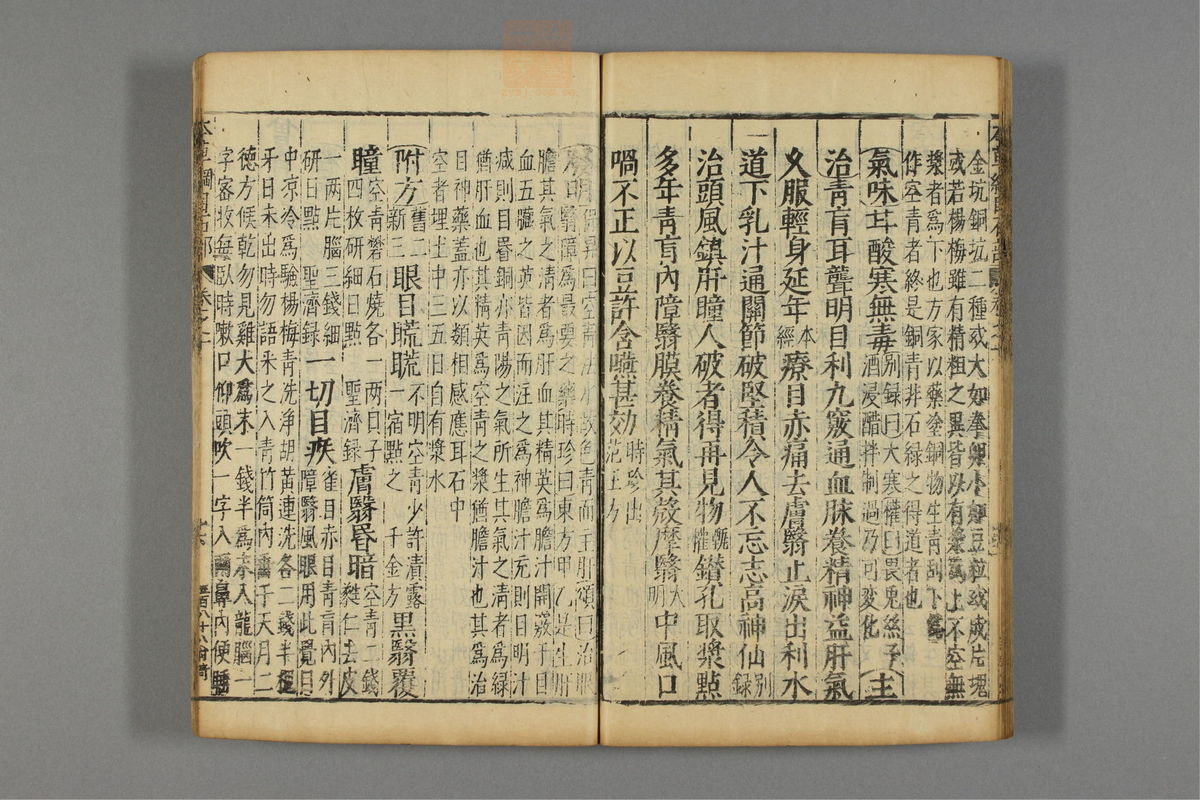 金坑銅坑二種或大如拳卵小如豆粒或成片塊
或若楊梅雖有精粗之異皆以有漿為上不空無
漿者為下也方家以藥塗銅物生青刮下
作空青者終是銅青非石綠之得道者也
氣味甘酸寒無毒別錄曰大寒權曰畏兔絲子
酒浸醋拌制過乃可變化主
治青盲耳聾明目利九竅通血脉養精神益肝氣
久服輕身延年本經療目赤痛去膚翳止淚出利水
道下乳汁通關節破堅積令人不忘志高神仙別錄
治頭風鎮肝瞳人破者得再見物甄權鑽孔取漿點
多年青盲內障翳膜養精氣其殼摩翳大明中風口
喎不正以豆許含嚥甚効時珍出范汪方
發明保昇曰空青法木故色青而主肝頌曰治眼
翳障為最要之藥時珍曰東方甲乙是生肝
膽其氣之清者為肝血其精英為膽汁開竅于目
血五臟之英皆因而注之為神膽汁充則目明汁
減則目昏銅亦青陽之氣所生其氣之清者為綠
猶肝血也其精英為空青之漿猶膽汁也其為治
目神藥蓋亦以類相感應耳石中
空者埋土中三五日自有漿水
附方舊二新三眼目䀮䀮不明空青少許漬露一宿點之千金方黑翳覆
瞳空青礬石燒各一兩貝子四枚研細日點聖濟錄膚翳昏暗空青二錢蕤仁去皮
一兩片腦三錢細研日點聖濟錄一切目疾雀目赤目青盲內外障翳風眼用此覺目
中凉冷為驗楊梅青洗淨胡黃連洗各二錢半槐
牙日未出時勿語采之入青竹筒內垂于天月二
德方候乾勿見雞犬為末一錢半為末入龍腦一
字密收每臥時嗽口仰頭吹一字入兩鼻內便睡
本草綱目石部 卷之十